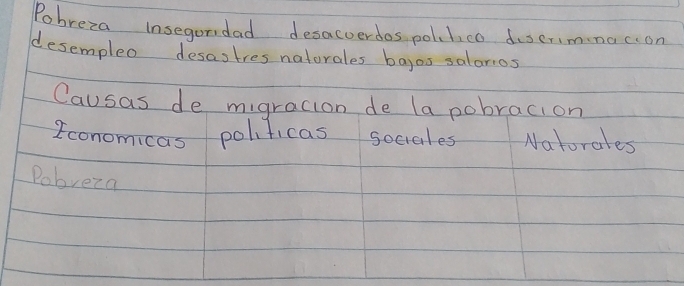 Pobreza Inseguridad desacuerdos politico discriminacion
desempleo desastres naturales bajos salarios
Causas de migracion de la pobracion
Economicas politicas Sociales Naturales
Pobreza